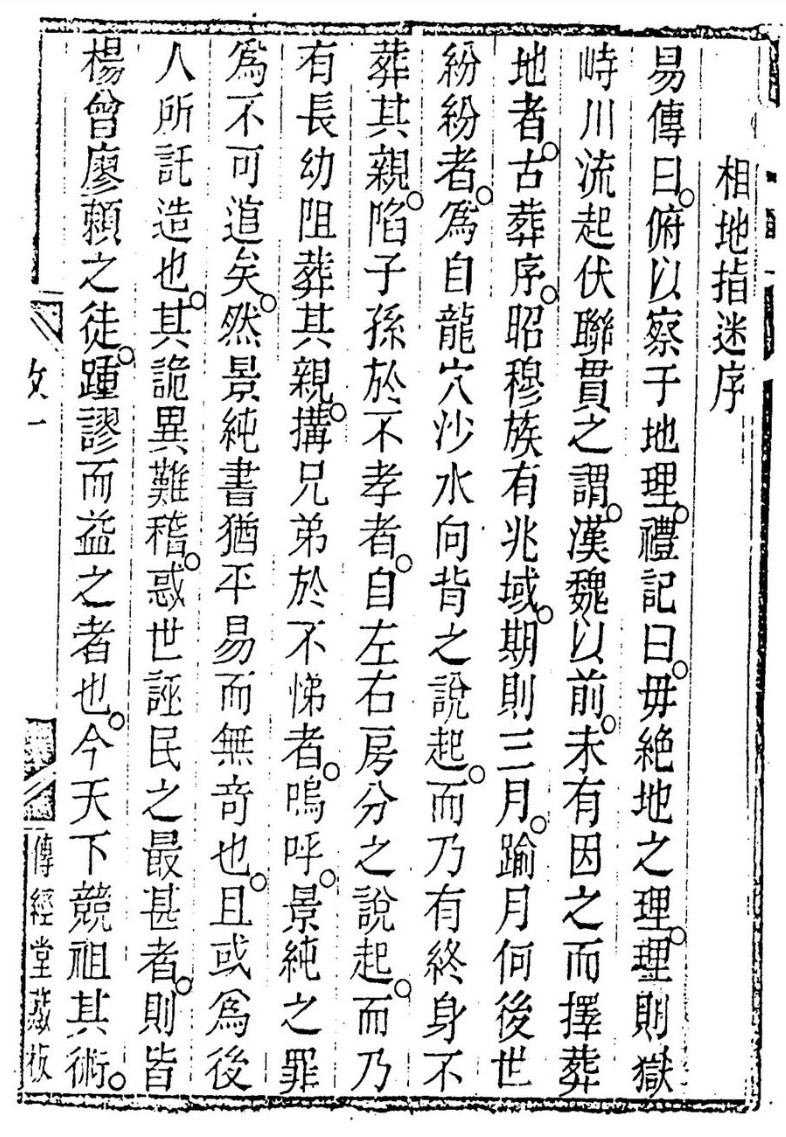 相地指迷序
易傳曰。俯以察于地理。禮記曰。毋絶地之理。理則獄
峙川流起伏聯貫之謂。漢魏以前。未有因之而擇葬
地者。古葬序。昭穆族有兆域。期則三月。踰月何後世
紛紛者。爲自龍穴沙水向背之說起。而乃有終身不
葬其親。陷子孫於不孝者。自左右房分之說起。而乃
有長幼阻葬其親。搆兄弟於不悌者。嗚呼。景純之罪
爲不可逭矣。然景純書猶平易而無奇也。且或爲後
人所託造也。其詭異難稽。惑世誣民之最甚者。則皆
楊曾廖賴之徒。踵謬而益之者也。今天下競祖其術。
傳經堂藏板